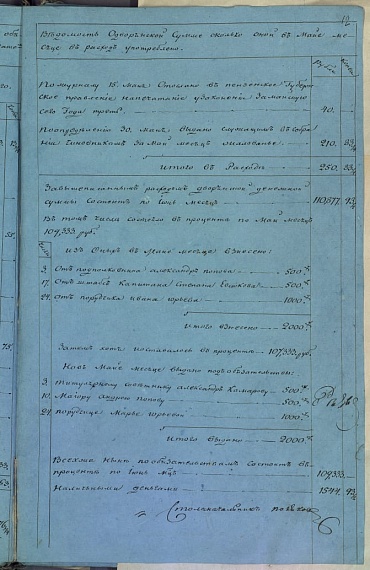 Вѣдомость Дворянской Суммѣ сколько оной въ Маїе ме-
сяце въ расходъ употреблено.
Рубли
По журналу 15. Мая. Отослано въ пензенское Губерн-
ское правленїе
сего Года трети 40.
30. Маїя, выдано служащимъ въ собра-
нїи Чиновникамъ за Маїй месяцъ жалованье 210. 33
Итого въ Расходѣ 250. 33
За вышеписаннымъ расходомъ дворянской денежной
суммы состоитъ по Іюнь месяцъ 110,877.
Въ томъ числѣ состояло въ процентѣ по Маїй месяцъ
109,333 руб.
Изъ Оныхъ въ Маїе месяце взнесено:
3. Отъ подполковника александра попова 500.
17. Отъ штабсъ Капитана Степана 500.
24. Отъ порутчика ивана юрьева 1000.
Итого взнесено 2000.
Затемъ хотя и оставалось въ процентѣ 107,333 руб.
Но въ Маїе месяце выдано подъ обязательствы:
3. Титулярному советнику александру Комарову 500.
10. Маїору андрею попову 500.
24. порутчице Марье юрьевой 1000.
Итого выдано 2000.
Всехже нынѣ по обязательствамъ состоитъ въ
процентѣ по Іюнь Мцъ 109333.
Наличными деньгами 1544.
Столоначальникъ